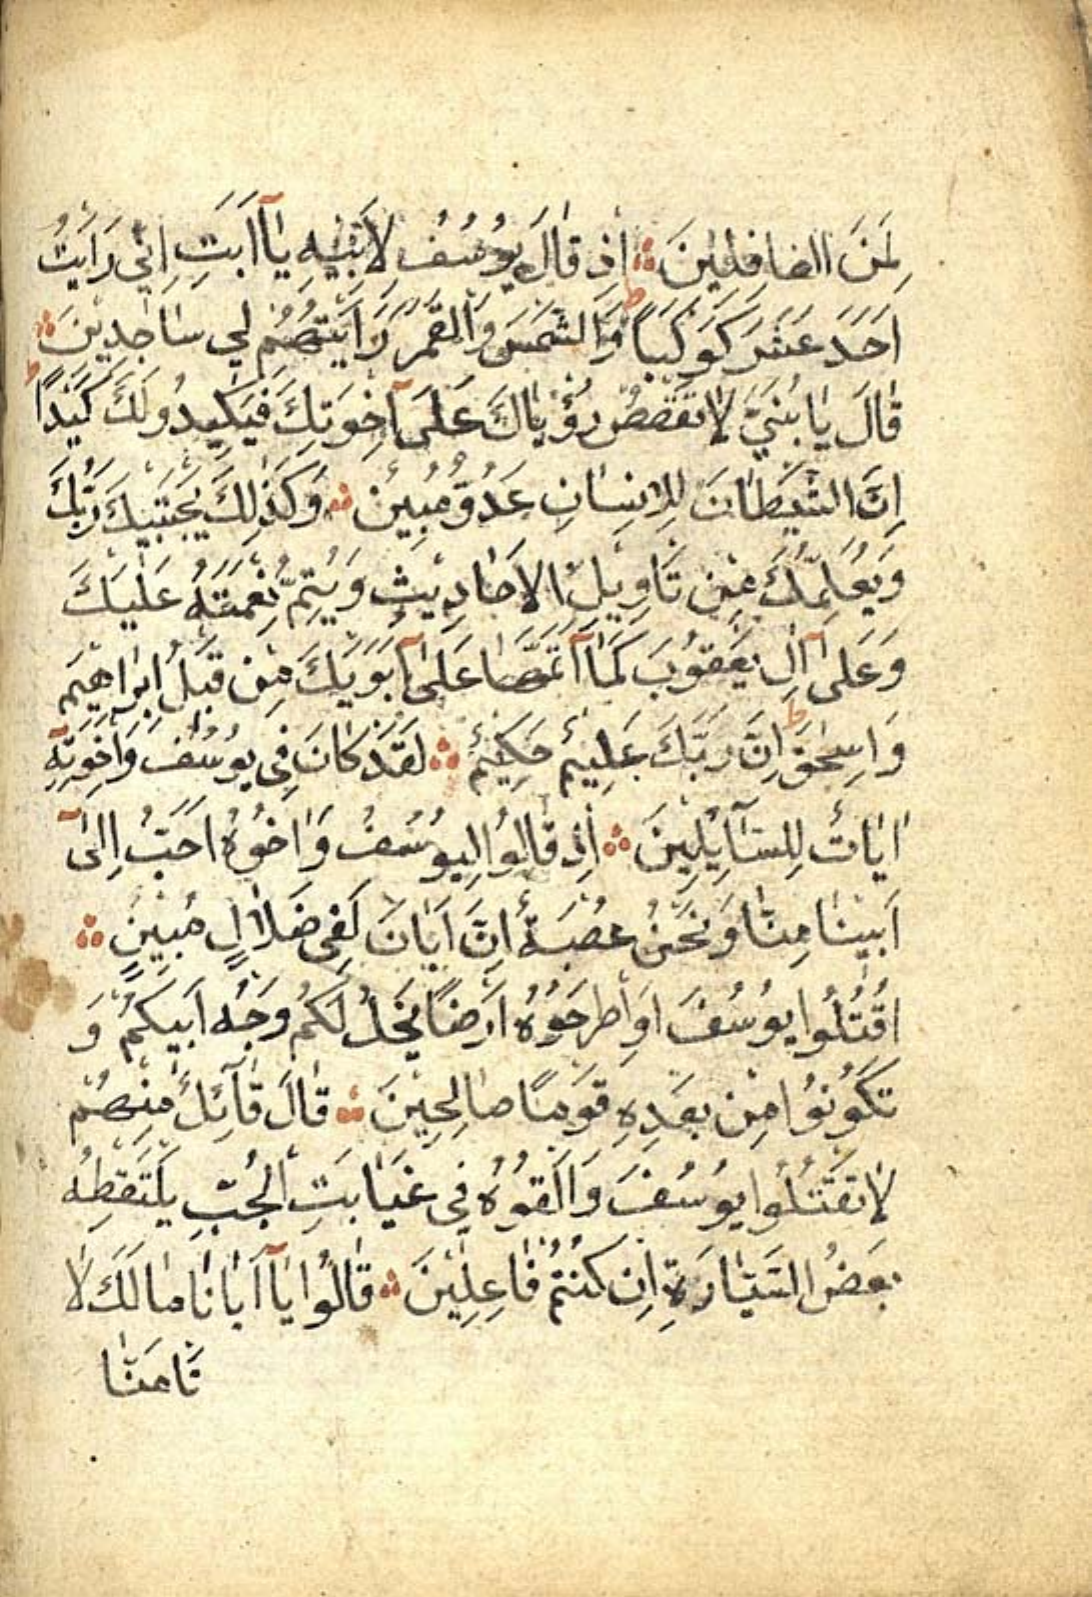 لَمِنَ الغَافِلِينَ ۞ اِذ قَالَ يُوسُفُ لِاَبِيهِ يَآاَبَتِ اِنِّي رَاَيتُ
اَحَدَ عَشَرَ كَوكَبًا ط وَالشَّمسَ وَالقَمَرَ رَاَيتُهُم لِي سَاجِدِينَ ۞
قَالَ يَا بُنَيَّ لَا تَقصُص رُؤيَاكَ عَلَىٓ اِخوَتِكَ فَيَكِيدُو لَكَ كَيدًا ط
اِنَّ الشَّيطَانَ لِلاِنسَانِ عَدُوٌّ مُبِينٌ ۞ وَكَذَلِكَ يَجتَبِيكَ رَبُّكَ
وَيُعَلِّمُكَ مِن تَاوِيلِ الاَحَادِيثِ وَيُتِمُّ نِعمَتَهُ عَلَيكَ
وَعَلَىٓ اٰلِ يَعقُوبَ كَمَآ اَتَمَّهَا عَلَىٓ اَبَوَيكَ مِن قَبلُ اِبرَاهِيمَ
وَاِسحٰقَ ط اِنَّ رَبَّكَ عَلِيمٌ حَكِيمٌ ۞ لَقَد كَانَ فِي يُوسُفَ وَاِخوَتِهٓ
اٰيَاتٌ لِلسَّآيِلِينَ ۞ اِذ قَالُوا لَيُوسُفُ وَاَخُوهُ اَحَبُّ اِلَىٓ
اَبِينَا مِنَّا وَنَحنُ عُصبَةٌ اِنَّ اَبَانَ لَفِي ضَلَالٍ مُبِينٍ ۞
اقتُلُوا يُوسُفَ اَوِ اطرَحُوهُ اَرضًا يَخلُ لَكُم وَجهُ اَبِيكُم وَ
تَكُونُوا مِن بَعدِهِ قَومًا صَالِحِينَ ۞ قَالَ قَآئِلٌ مِنهُم
لَا تَقتُلُوا يُوسُفَ وَاَلقُوهُ فِي غَيَابَتِ الجُبِّ يَلتَقِطهُ
بَعضُ السَّيَّارَةِ اِن كُنتُم فَاعِلِينَ ۞ قَالُوا يَآاَبَانَا مَا لَكَ لَا
تَامَنَّا